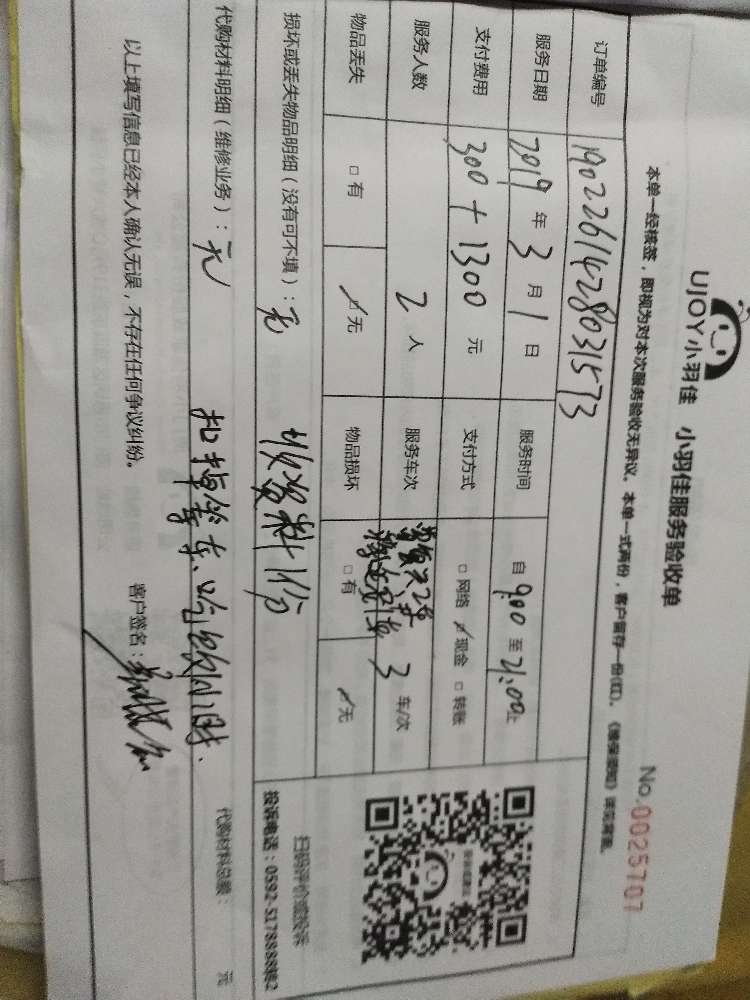 UJOY小羽佳 小羽佳服务验收单
No.0025707
本单一经核签,即视为对本次服务验收无异议。本单一式两份,客户留存一份(红)。《维保须知》详见背面。
订单编号 1902261428031573
服务日期 2019 年 3 月 1 日 服务时间 自 9:00 至 21:00止
支付费用 300 + 1300 元 支付方式 □网络 ☑现金 □转账
服务人数 2 人 服务车次 3 车/次
物品丢失 □有 ☑无 物品损坏 □有 ☑无
损坏或丢失物品明细(没有可不填):无 收资料1份
代购材料明细(维修业务):无 代购材料总额: 元
以上填写信息已经本人确认无误,不存在任何争议纠纷。 客户签名:
扫码评价或投诉
投诉电话:0592-5178888转2